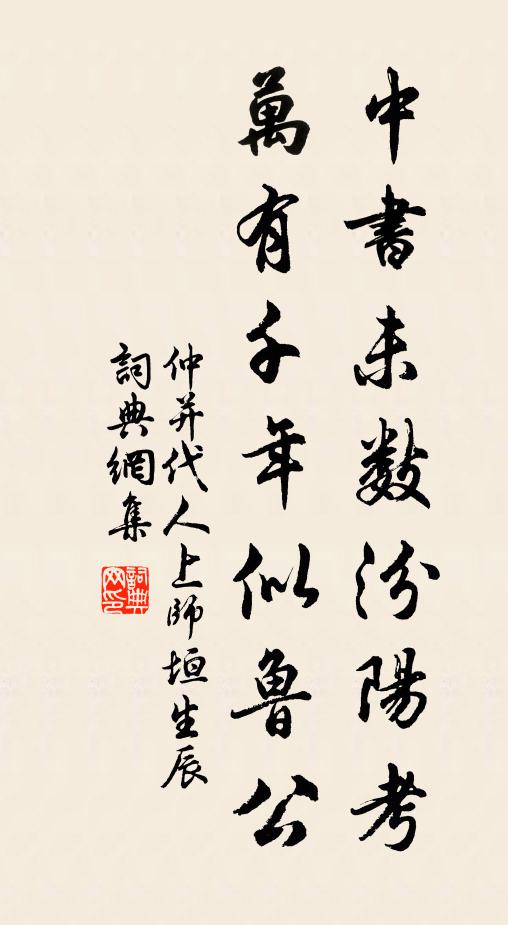 中書未數汾陽考
萬有千年似魯公
仲并代人上師垣生辰
詞典網集
詞典网印